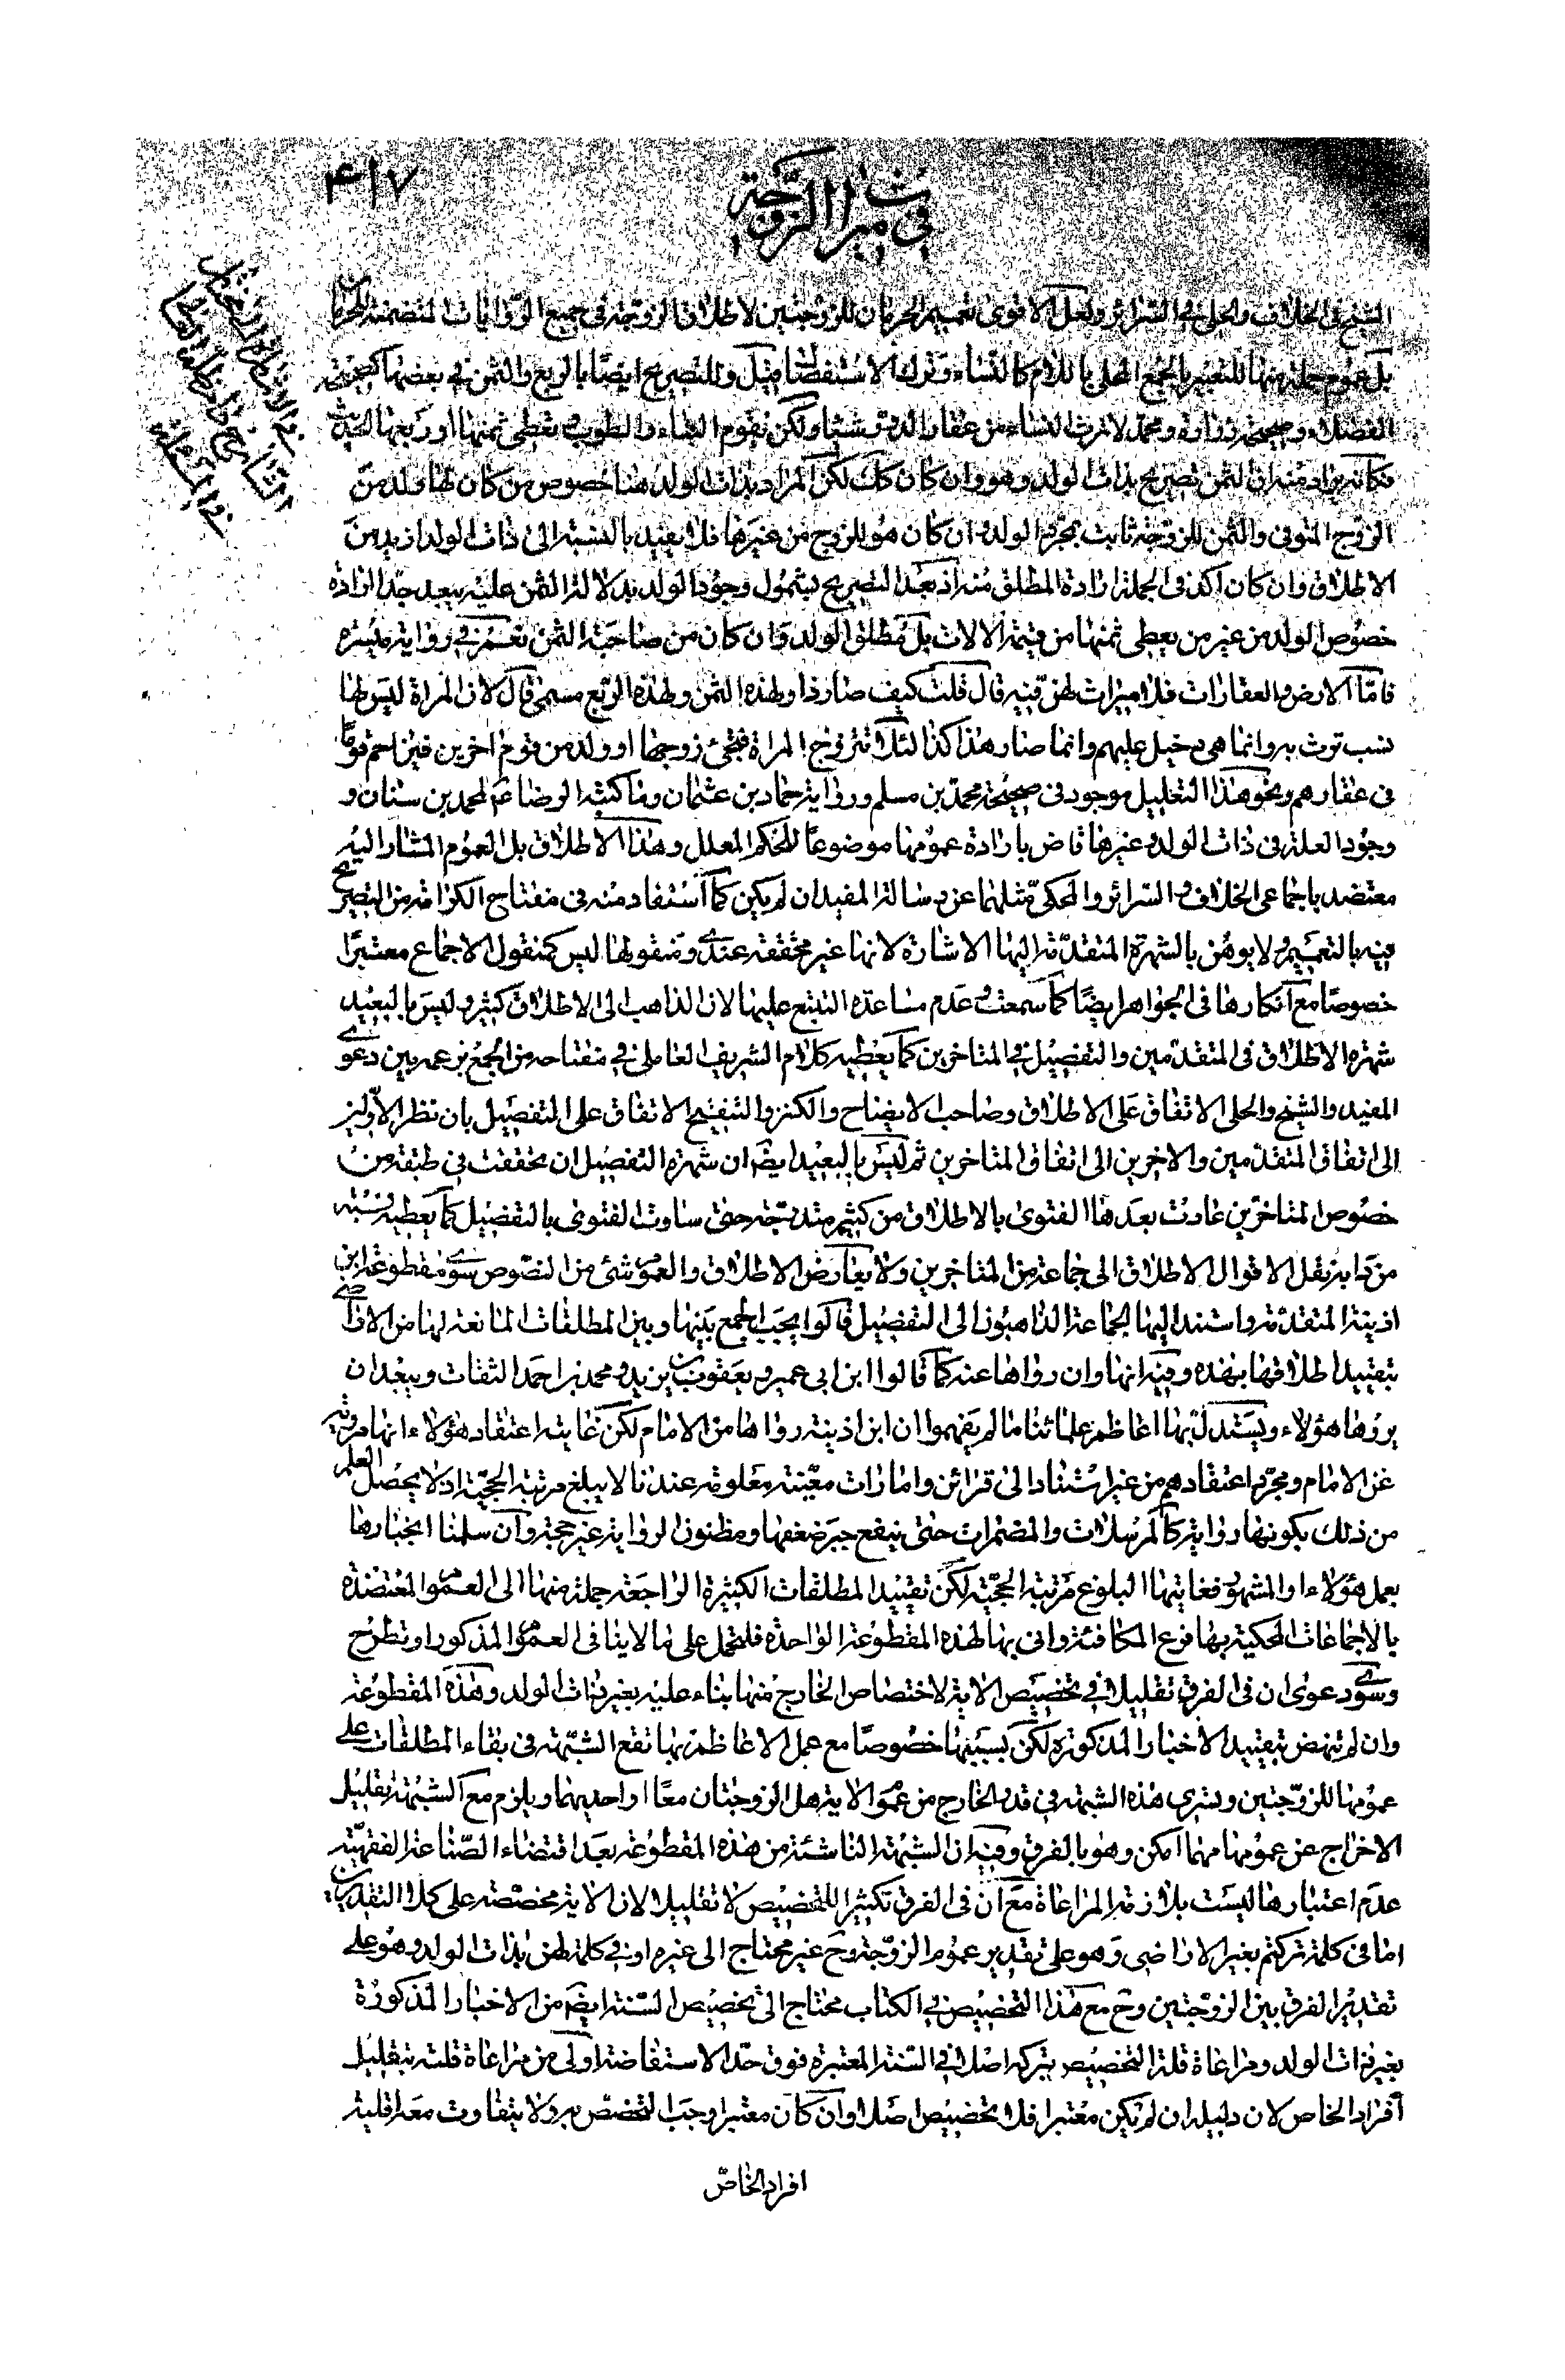 في ميراث الزوجة
۴۱۷
الشيخ في الخلاف والحلي في السرائر ولعل الاقوى تعميم الحرمان للزوجتين لاطلاق الزوجة في جميع الروايات المتضمنة للحرمان
بل عموم جملة منها للتعبير بالجمع المحلى باللام كالنساء وترك الاستفصال وللتصريح ايضا بالربع والثمن في بعضها كصحيحة
الفضلاء وصحيحة زرارة ومحمد لا ترث النساء من عقار الدور شيئا ولكن يقوم البناء والطوب وتعطى ثمنها او ربعها الحديث
فكانه يراد منه ان الثمن تصريح بذات الولد وهو وان كان كك لكن المراد بذات الولد هنا خصوص من كان لها ولد من
الزوج المتوفى والثمن للزوجة ثابت بمجرد الولد وان كان هو للزوج من غيرها فلا يفيد بالنسبة الى ذات الولد ازيد من
الاطلاق وان كان اكد في الجملة ارادة المطلق منه اذ بعد التصريح بشمول وجود الولد بدلالة الثمن عليه يبعد جدا ارادة
خصوص الولد من غير من يعطى ثمنها من قيمة الالات بل مطلق الولد وان كان من صاحبة الثمن نعم في رواية ميسره
فاما الارض والعقارات فلا ميراث لهن فيه قال قلت كيف صار ذا ولهذه الثمن ولهذه الربع مسمى قال لان المراة ليس لها
نسب ترث به وانما هي دخيل عليهم وانما صار هذا كذا لئلا تتزوج المراة فيجئ زوجها او ولد من قوم اخرين فيزاحم قوما
في عقارهم ونحو هذا التعليل موجود في صحيحة محمد بن مسلم ورواية حماد بن عثمان وما كتبه الرضا ع لمحمد بن سنان و
وجود العلة في ذات الولد وغيرها قاض بارادة عمومها موضوعا للحكم المعلل وهذا الاطلاق بل العموم المشار اليه
معتضد باجماعي الخلاف والسرائر والمحكي مثلهما عن رسالة المفيد ان لم يكن كما استفاد منه في مفتاح الكرامة من التصريح
فيه بالتعميم ولا يوهن بالشهرة المتقدمة اليها الاشارة لانها غير محققة عندي ومنقولها ليس كمنقول الاجماع معتبرا
خصوصا مع انكارها في الجواهر ايضا كما سمعت وعدم مساعدة التتبع عليها لان الذاهب الى الاطلاق كثير وليس بالبعيد
شهرة الاطلاق في المتقدمين والتفصيل في المتاخرين كما يعطيه كلام الشريف العاملي في مفتاحه من الجمع بين دعوى
المفيد والشيخ والحلي الاتفاق على الاطلاق وصاحب الايضاح والكنز والتنقيح الاتفاق على التفصيل بان نظر الاولين
الى اتفاق المتقدمين والاخرين الى اتفاق المتاخرين ثم ليس بالبعيد ايضا ان شهرة التفصيل ان تحققت في طبقة من
خصوص المتاخرين عادت بعدها الفتوى بالاطلاق من كثير متدرجة حتى ساوت الفتوى بالتفصيل كما يعطيه نسبته
من دابه نقل الاقوال الاطلاق الى جماعة من المتاخرين ولا يعارض الاطلاق والعموم شئ من النصوص سوى مقطوعة ابن
اذينة المتقدمة واستند اليها الجماعة الذاهبون الى التفصيل قالوا يجب الجمع بينها وبين المطلقات المانعة لها من الاراضي
بتقييد اطلاقها بهذه وفيه انها وان رواها عنه كما قالوا ابن ابي عمير ويعقوب بن يزيد ومحمد بن احمد الثقات ويبعد ان
يروها هؤلاء ويستدل بها اعاظم علمائنا ما لم يفهموا ان ابن اذينة رواها من الامام لكن غايته اعتقاد هؤلاء انها مروية
عن الامام ومجرد اعتقادهم من غير استناد الى قرائن وامارات معينة معلومة عندنا لا يبلغ مرتبة الحجية اذ لا يحصل العلم
من ذلك بكونها رواية كالمرسلات والمضمرات حتى ينفع جبر ضعفها ومظنون الرواية غير حجة وان سلمنا انجبارها
بعمل هؤلاء او المشهور فغايتها البلوغ مرتبة الحجية لكن تقييد المطلقات الكثيرة الراجعة جملة منها الى العموم المعتضدة
بالاجماعات المحكية بها فرع المكافئة وانى بها لهذه المقطوعة الواحدة فلتحمل على ما لا ينافي العموم المذكور او تطرح
وسوى دعوى ان في الفرق تقليلا في تخصيص الاية لاختصاص الخارج منها بناء عليه بغير ذات الولد وهذه المقطوعة
وان لم تنهض بتقييد الاخبار المذكورة لكن بسببها خصوصا مع عمل الاعاظم بها تقع الشبهة في بقاء المطلقات على
عمومها للزوجتين وتسري هذه الشبهة في قدر الخارج من عموم الاية هل الزوجتان معا او احديهما ويلزم مع الشبهة تقليل
الاخراج عن عمومها مهما امكن وهو بالفرق وفيه ان الشبهة الناشئة من هذه المقطوعة بعد اقتضاء الصناعة الفقهية
عدم اعتبارها ليست بلازمة المراعاة مع ان في الفرق تكثيرا للتخصيص لا تقليلا لان الاية مخصصة على كلا التقديرين
اما في كلمة تركتم بغير الاراضي وهو على تقدير عموم الزوجة وح غير محتاج الى غيره او في كلمة لهن بذات الولد وهو على
تقدير الفرق بين الزوجتين وح مع هذا التخصيص في الكتاب محتاج الى تخصيص السنة ايضا من الاخبار المذكورة
بغير ذات الولد ومراعاة قلة التخصيص بتركه اصلا في السنة المعتبرة فوق حد الاستفاضة اولى من مراعاة قلته بتقليل
افراد الخاص لان دليله ان لم يكن معتبرا فلا تخصيص اصلا وان كان معتبرا وجب التخصص به ولا يتفاوت معه اقلية
افراد الخاص